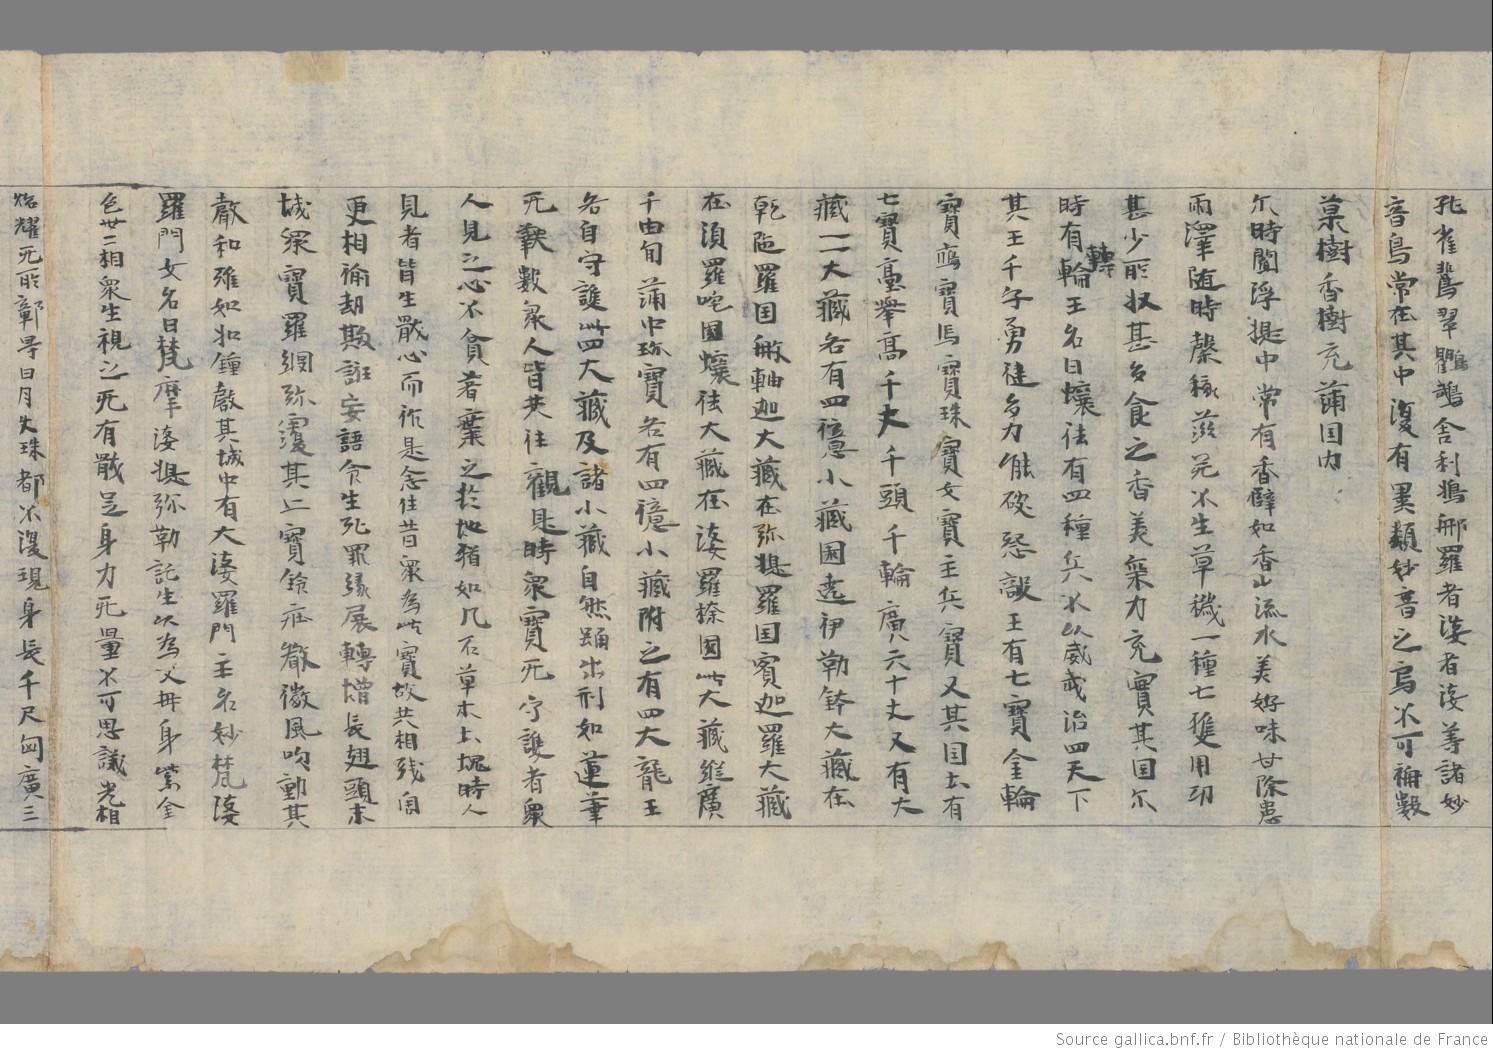 孔雀翡翠鸚鵡舍利鳩那羅耆婆耆婆等諸妙
音鳥常在其中復有異類妙音之鳥不可稱數
菓樹香樹充滿国內
尒時閻浮提中常有香譬如香山流水美好味甘除患
雨澤随時槃稼滋茂不生草穢一種七獲用功
甚少所收甚多食之香美氣力充實其国尒
時有轉輪王名曰蠰佉有四種兵不以威武治四天下
其王千子勇徤多力能破怨敵王有七寶金輪
寶鳥寶馬寶珠寶女寶主兵寶又其国土有
七寶臺舉高千丈千頭千輪廣六十丈又有大
藏一大藏各有四億小藏圍遶伊勒鉢大藏在
乾陁羅国般軸迦大藏在弥提羅国賓迦羅大藏
在湏羅吒國蠰佉大藏在婆羅㮈國此大藏縱廣
千由旬滿中珎寶各有四億小藏附之有四大龍王
各自守護此四大藏及諸小藏自然踊出形如蓮華
无䡈數衆人皆共往觀是時衆寶无守護者衆
人見之心不貪著棄之於地猶如凡石草木土塊時人
見者皆生猒心而作是念往昔衆為此寶故共相残害
更相偷劫欺誑妄語令生死罪縁展轉增長翅頭末
城衆寶羅網弥覆其上寶鈴庄嚴微風吹動其
聲和雅如扣鍾聲其城中有大婆羅門主名妙梵婆
羅門女名曰梵摩婆提弥勒託生以為父母身紫金
色卅二相衆生視之无有猒足身力无量不可思議光相
炤耀无所鄣导日月火珠都不復現身長千尺匈廣三